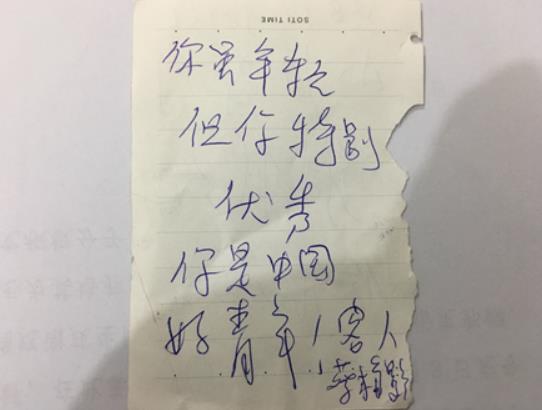 SOTI TIME
你虽年轻
但你特别
优秀
你是中国
好青年！客人